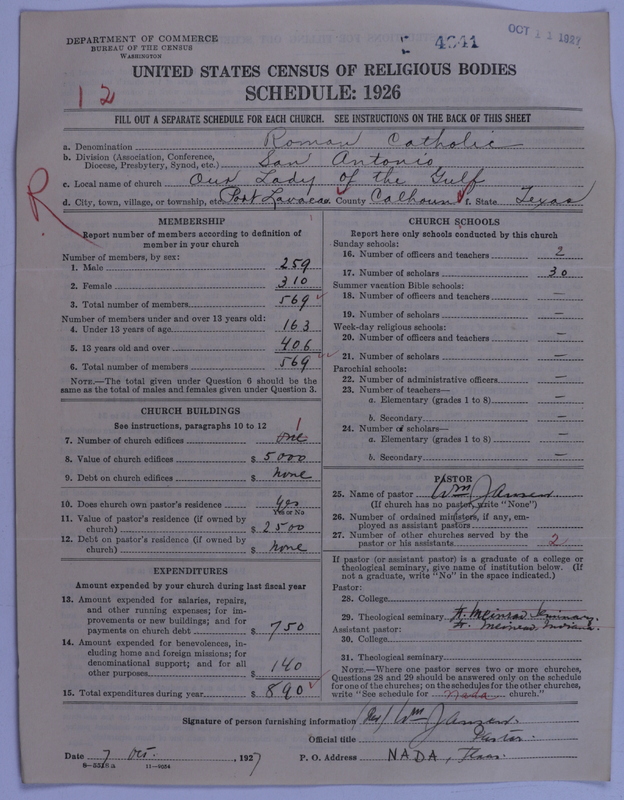 DEPARTMENT OF COMMERCE
BUREAU OF THE CENSUS
WASHINGTON
4641
OCT 11 1927
UNITED STATES CENSUS OF RELIGIOUS BODIES
SCHEDULE: 1926
12
FILL OUT A SEPARATE SCHEDULE FOR EACH CHURCH. SEE INSTRUCTIONS ON THE BACK OF THIS SHEET
R
a. Denomination Roman Catholic
b. Division (Association, Conference, Diocese, Presbytery, Synod, etc.) San Antonio
c. Local name of church Our Lady of the Gulf
d. City, town, village, or township, etc. Port Lavaca e. County Calhoun f. State Texas
MEMBERSHIP
Report number of members according to definition of
member in your church
Number of members, by sex:
1. Male 259
2. Female 310
3. Total number of members 569
Number of members under and over 13 years old:
4. Under 13 years of age 163
5. 13 years old and over 406
6. Total number of members 569
NOTE.—The total given under Question 6 should be
same as the total of males and females given under Question 3.
CHURCH BUILDINGS
See instructions, paragraphs 10 to 12
7. Number of church edifices one 1
8. Value of church edifices $ 5000
9. Debt on church edifices $ none
10. Does church own pastor's residence? yes
Yes or No
11. Value of pastor's residence (if owned by
church) $ 2500
12. Debt on pastor's residence (if owned by
church) $ none
EXPENDITURES
Amount expended by your church during last fiscal year
13. Amount expended for salaries, repairs,
and other running expenses; for im-
provements or new buildings; and for
payments on church debt $ 750
14. Amount expended for benevolences, in-
cluding home and foreign missions; for
denominational support; and for all
other purposes $ 140
15. Total expenditures during year $ 890
CHURCH SCHOOLS
Report here only schools conducted by this church
Sunday schools:
16. Number of officers and teachers 2
17. Number of scholars 30
Summer vacation Bible schools:
18. Number of officers and teachers —
19. Number of scholars —
Week-day religious schools:
20. Number of officers and teachers —
21. Number of scholars —
Parochial schools:
22. Number of administrative officers —
23. Number of teachers—
a. Elementary (grades 1 to 8) —
b. Secondary —
24. Number of scholars—
a. Elementary (grades 1 to 8) —
b. Secondary —
PASTOR
25. Name of pastor Wm Jansen
(If church has no pastor, write "None")
26. Number of ordained ministers, if any, em-
ployed as assistant pastors
27. Number of other churches served by the
pastor or his assistants 2
If pastor (or assistant pastor) is a graduate of a college or
theological seminary, give name of institution below. (If
not a graduate, write "No" in the space indicated.)
Pastor:
28. College
29. Theological seminary St. Meinrad Seminary
Assistant pastor: St. Meinrad, Indiana
30. College
31. Theological seminary
NOTE.—Where one pastor serves two or more churches,
Questions 28 and 29 should be answered only on the schedule
for one of the churches; on the schedules for the other churches,
write "See schedule for Nada church."
Signature of person furnishing information Wm Jansen
Official title Pastor
Date 7 Oct. , 1927 P. O. Address NADA, Texas
8—5518a 11—9054